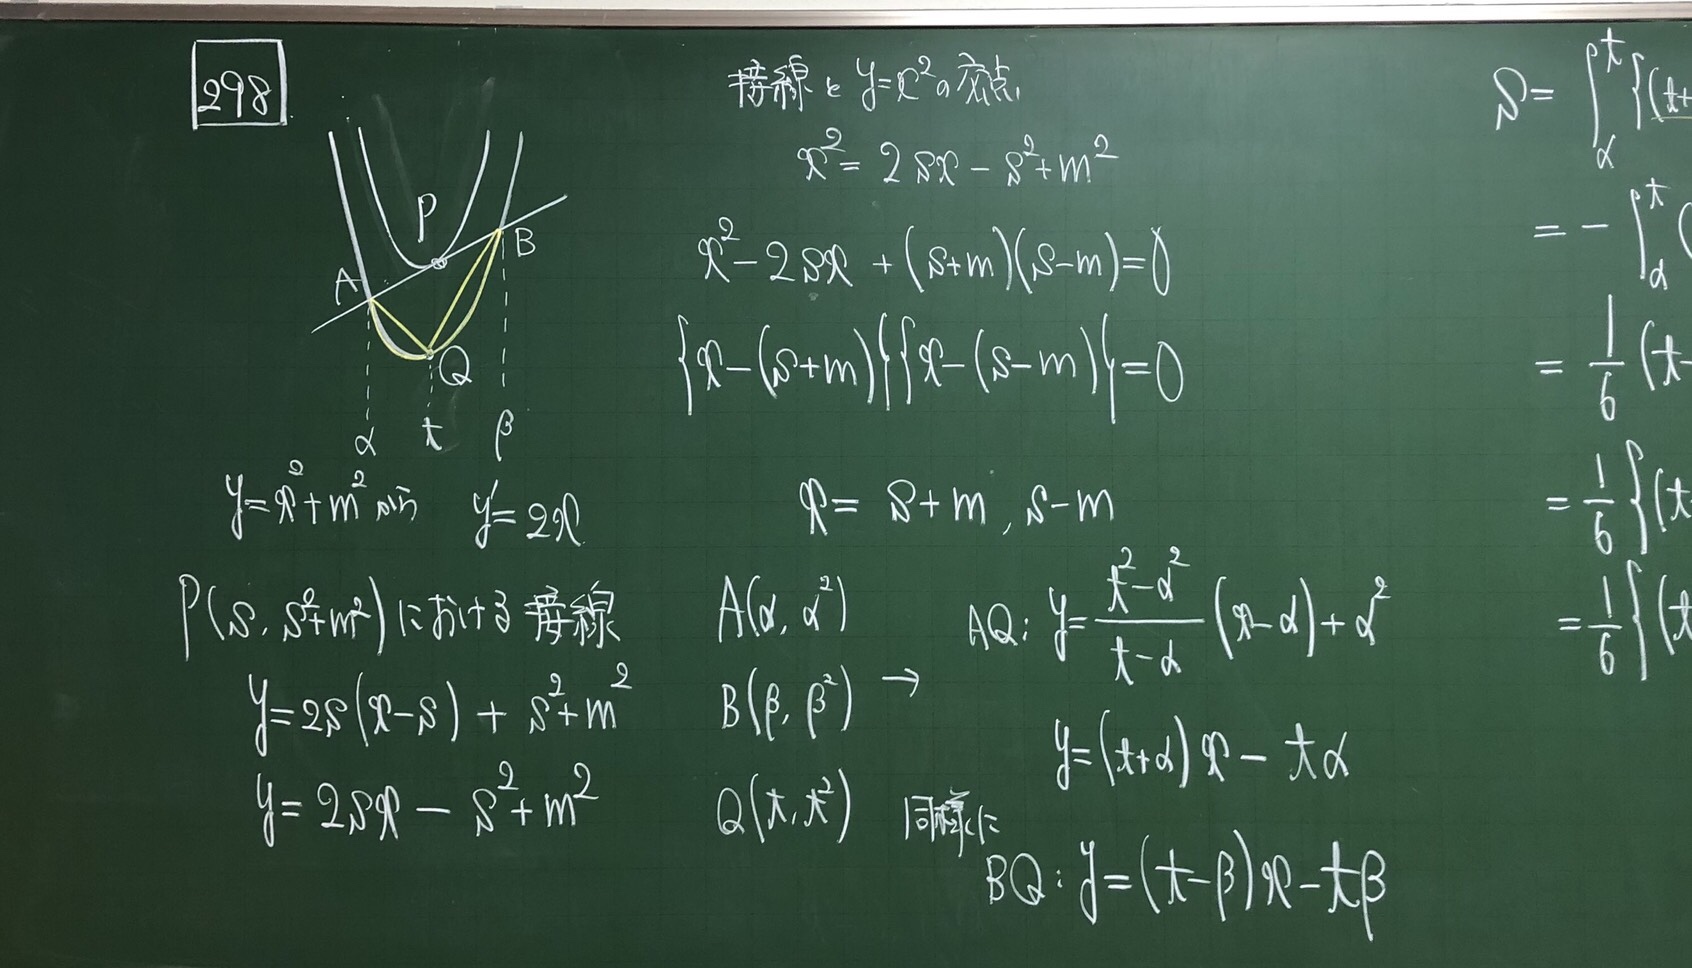 298
P
A
B
Q
α t β
y=x²+m² から y'=2x
P(s, s²+m²)における接線
y=2s(x-s)+s²+m²
y=2sx-s²+m²
接線と y=x²の交点、
x²=2sx-s²+m²
x²-2sx+(s+m)(s-m)=0
{x-(s+m)}{x-(s-m)}=0
x= s+m, s-m
A(α, α²)
B(β, β²) →
Q(t, t²)
AQ: y=\frac{t²-α²}{t-α}(x-α)+α²
y=(t+α)x-tα
同様に
BQ: y=(t-β)x-tβ
S=∫_α^t{(t+
=-∫_α^t(
=\frac{1}{6}(t-
=\frac{1}{6}{(t-
=\frac{1}{6}{(t